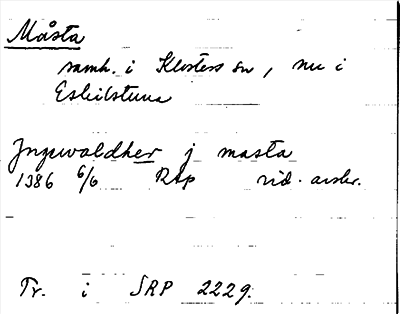 Måsta
samh. i Klosters sn, nu i
Eskilstuna
Jngewaldher j masta
1386 6/6 RAp vid. avskr.
Tr. i SRP 2229.